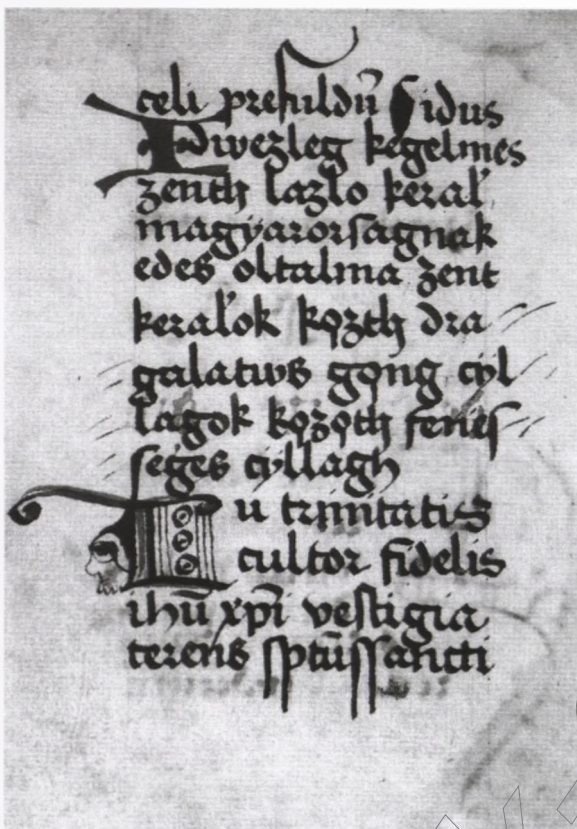 celi prefuldū sidus
Idwezleg kegelmes
zenth lazlo keral'
magyarorsagnak
edes oltalma zent
keral'ok kọzth dra
galatws gọng cÿl
lagok kọzọth fenẹs
seges cÿllagh
Tu trinitatis
cultor fidelis
ihū xp̄i vestigia
terens sp̄ūssancti